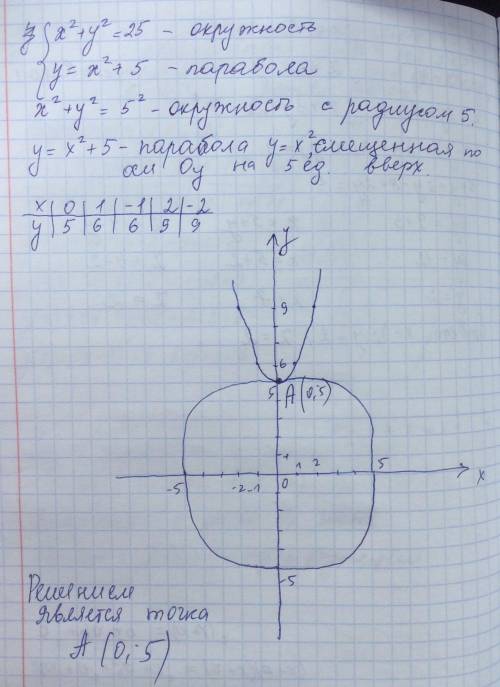 з) { x² + y² = 25 - окружность
y = x² + 5 - парабола
x² + y² = 5² - окружность с радиусом 5.
y = x² + 5 - парабола y = x², смещенная по
оси Оу на 5 ед. вверх.
x | 0 | 1 | -1 | 2 | -2
y | 5 | 6 | 6 | 9 | 9
y
9
6
5 A (0;5)
1
-5 -2 -1 0 1 2 5 x
-5
Решением
является точка
A (0;5)